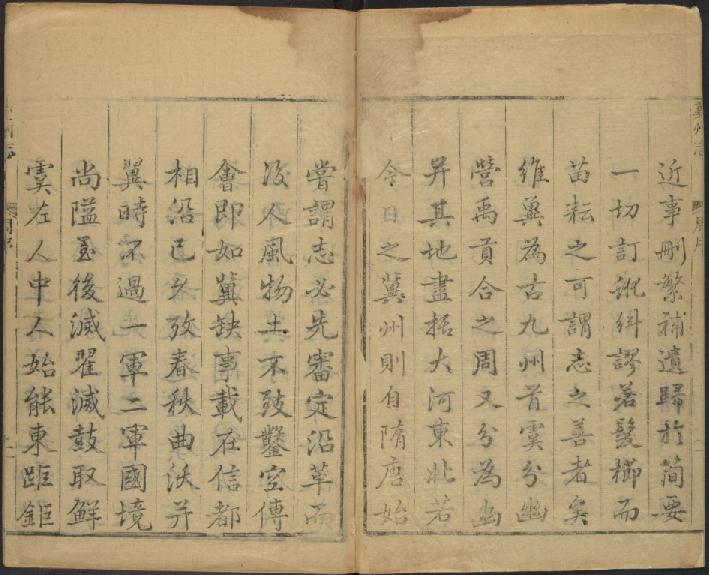 近事刪繁補遺歸於簡要
一切訂訛糾謬若髮櫛而
苗耘之可謂志之善者矣
維冀為古九州首虞分幽
營禹貢合之周又分為幽
并其地盡括大河東北若
今日之冀州則自隋唐始
嘗謂志必先審定沿革而
後人風物土不致鑿空傅
會即如冀缺事載在信都
相沿已久攷春秋曲沃并
翼時不過一軍二軍國境
尚隘至後滅翟滅鼓取鮮
虞左人中人始能東距鉅